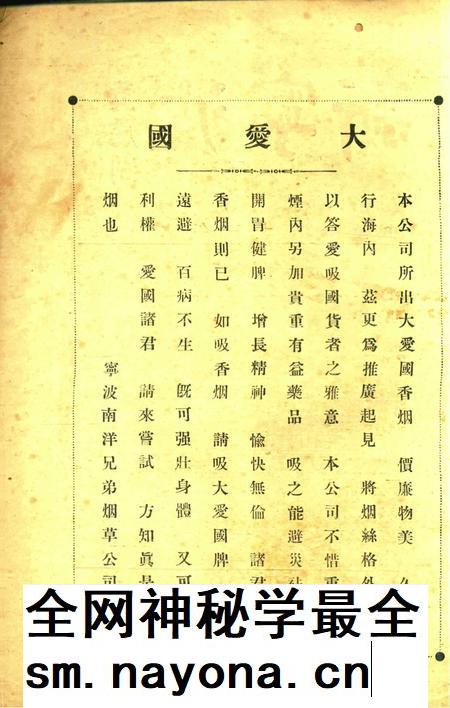 大愛國
本公司所出大愛國香烟 價廉物美
行海內 茲更爲推廣起見 將烟絲格外
以答愛吸國貨者之雅意 本公司不惜重
煙內另加貴重有益藥品 吸之能避災
開胃健脾 增長精神 愉快無倫 諸君
香烟則已 如吸香烟 請吸大愛國牌
遠避 百病不生 旣可强壯身體 又可
利權 愛國諸君 請來嘗試 方知眞是
烟也 寧波南洋兄弟烟草公司
全网神秘学最全
sm.nayona.cn